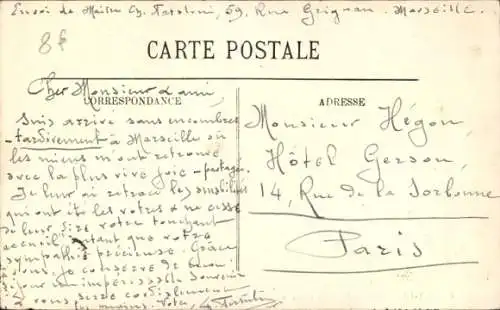 Envoi de Maître Ch. 59, Rue Grignan. Marseille.
8f
CARTE POSTALE
Cher Monsieur & ami,
CORRESPONDANCE
ADRESSE
Suis arrivé sans encombres
tardivement à Marseille où
les miens m'ont retrouvé
avec la plus vive joie - partagée.
Je leur ai retracé les
qui ont été les vôtres & ne cesse
de leur dire votre touchant
accueil autant que votre
sympathie précieuse. Grâce
à vous, je conserve de
un souvenir
& vous serre cordialement
les mains. Votre
Monsieur Hégon,
Hôtel Gerson,
14, Rue de la Sorbonne
Paris